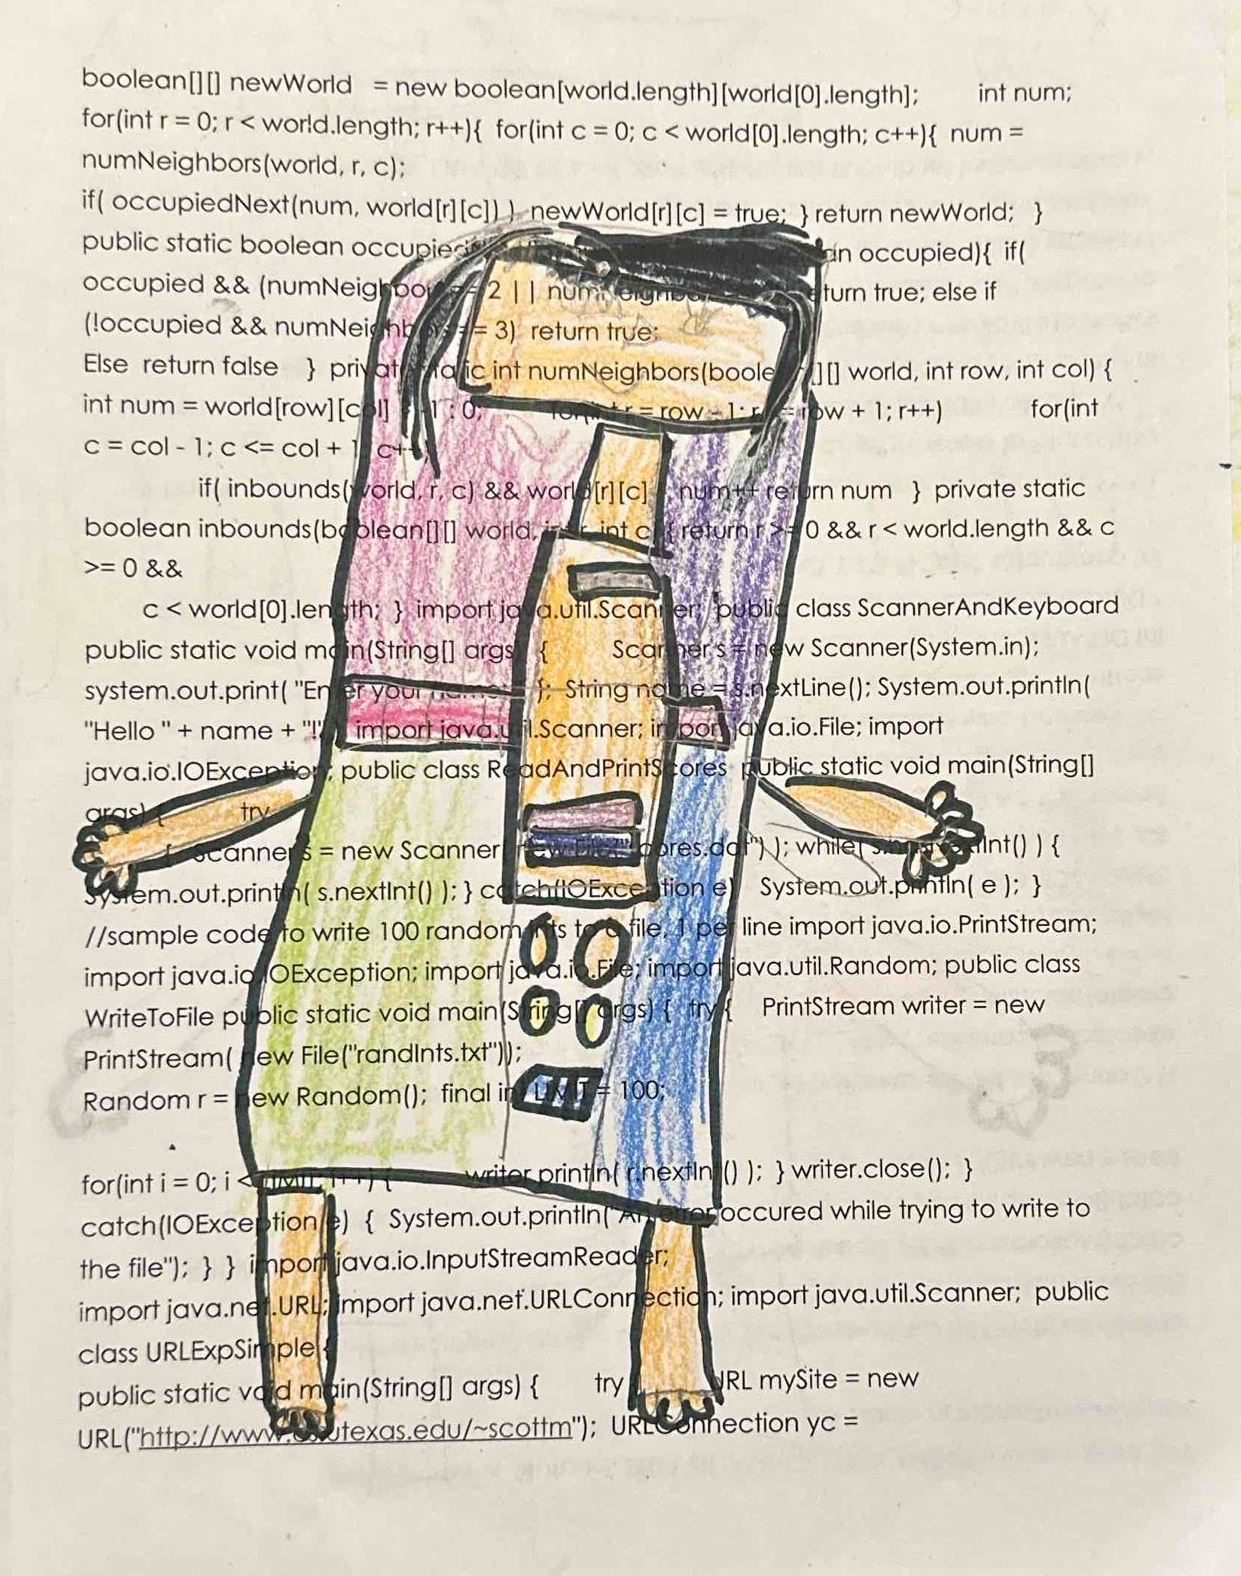 boolean[][] newWorld = new boolean[world.length][world[0].length]; int num;
for(int r = 0; r < world.length; r++){ for(int c = 0; c < world[0].length; c++){ num =
numNeighbors(world, r, c);
if( occupiedNext(num, world[r][c]) ) newWorld[r][c] = true; } return newWorld; }
public static boolean occupied){ if(
occupied && (numNeighbors == 2 || numNeighbors return true; else if
(!occupied && numNeighbors == 3) return true;
Else return false } private static int numNeighbors(boolean[][] world, int row, int col) {
int num = world[row][col] -1 : 0; for(int r = row - 1; r <= row + 1; r++) for(int
c = col - 1; c <= col + 1; c++
if( inbounds(world, r, c) && world[r][c] num++ return num } private static
boolean inbounds(boolean[][] world, int r, int c) { return r >= 0 && r < world.length && c
>= 0 &&
c < world[0].length; } import java.util.Scanner; public class ScannerAndKeyboard
public static void main(String[] args) { Scanner s = new Scanner(System.in);
system.out.print( "Enter your name ); String name = s.nextLine(); System.out.println(
"Hello " + name + "!" import java.util.Scanner; import java.io.File; import
java.io.IOException; public class ReadAndPrintScores public static void main(String[]
args) { try
{ Scanner s = new Scanner( new File("scores.dat") ); while( s.hasNextInt() ) {
System.out.println( s.nextInt() ); } catch(IOException e) System.out.println( e ); }
//sample code to write 100 random ints to a file, 1 per line import java.io.PrintStream;
import java.io.IOException; import java.io.File; import java.util.Random; public class
WriteToFile public static void main(String[] args) { try { PrintStream writer = new
PrintStream( new File("randInts.txt"));
Random r = new Random(); final int LIMIT = 100;
for(int i = 0; i < LIMIT; i++) { writer.println( r.nextInt() ); } writer.close(); }
catch(IOException e) { System.out.println("An error occured while trying to write to
the file"); } } import java.io.InputStreamReader;
import java.net.URL; import java.net.URLConnection; import java.util.Scanner; public
class URLExpSimple {
public static void main(String[] args) { try URL mySite = new
URL("http://www.cs.utexas.edu/~scottm"); URLConnection yc =